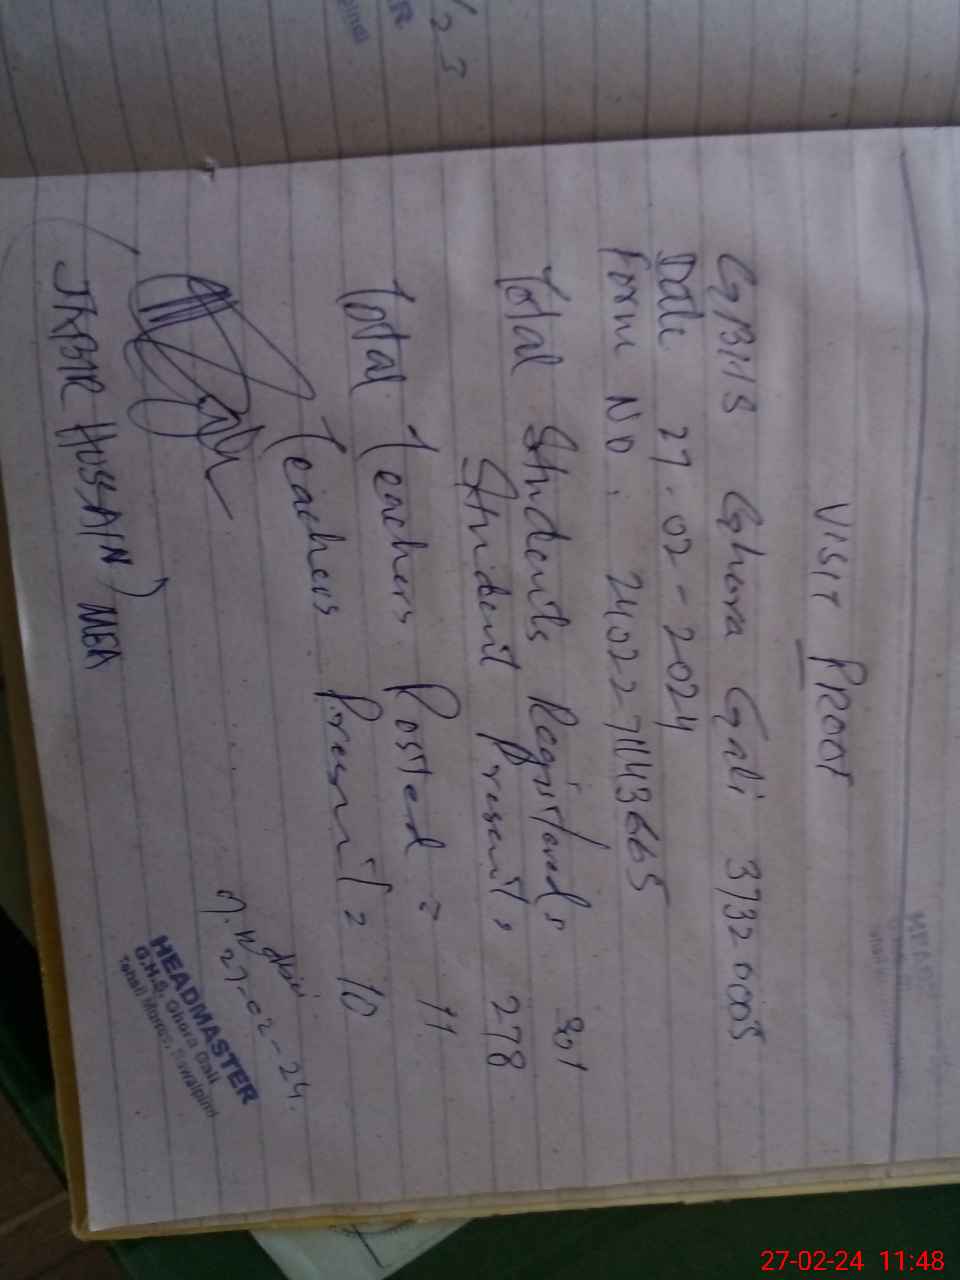 VISIT PROOF
GBHS Ghora Gali 37320005
Date 27.02-2024
Form No: 2402271143665
Total Students Registered = 301
Student Present = 278
Total Teachers Posted = 11
Teachers Present = 10
27-02-24
JABIR HUSSAIN) MEA
HEADMASTER
G.H.S. Ghora Gali
Tehsil Murree, Rawalpindi
/23
27-02-24 11:48